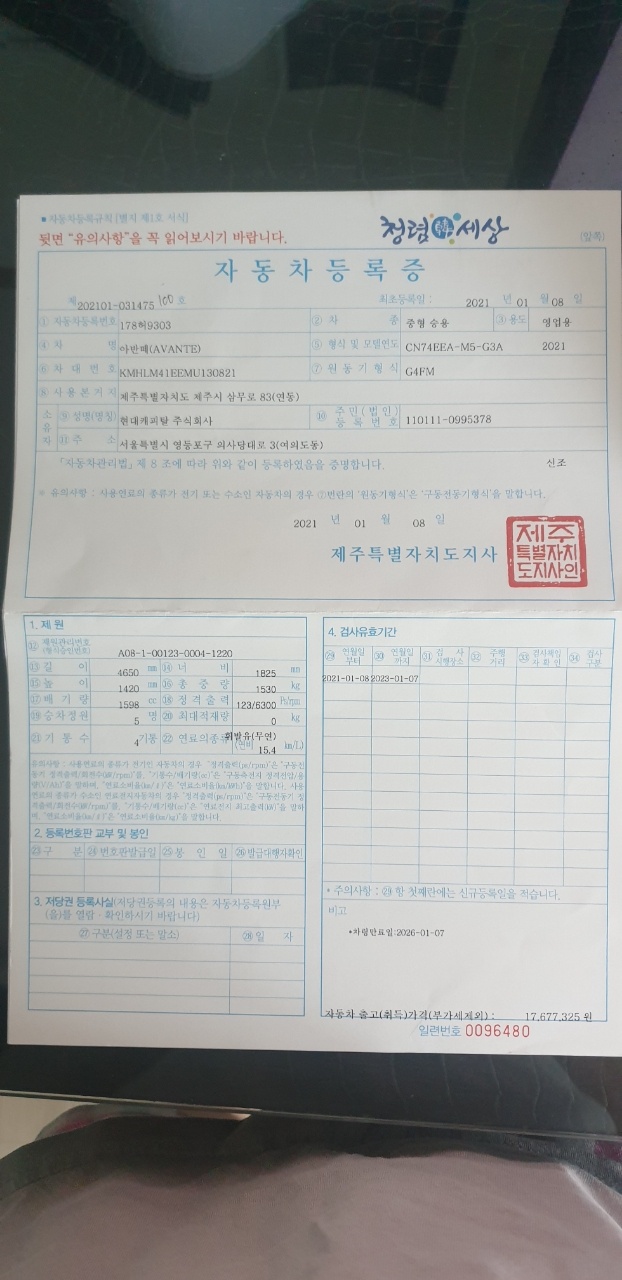 ■ 자동차등록규칙 [별지 제1호 서식]
뒷면 "유의사항"을 꼭 읽어보시기 바랍니다.
청렴 韓 세상
(앞쪽)
자동차등록증
제 202101-031475 100 호 최초등록일 : 2021 년 01 월 08 일
① 자동차등록번호 178허9303 ② 차 종 중형 승용 ③ 용도 영업용
④ 차 명 아반떼(AVANTE) ⑤ 형식 및 모델연도 CN74EEA-M5-G3A 2021
⑥ 차 대 번 호 KMHLM41EEMU130821 ⑦ 원 동 기 형 식 G4FM
⑧ 사 용 본 거 지 제주특별자치도 제주시 삼무로 83(연동)
소유자 ⑨ 성명(명칭) 현대캐피탈 주식회사 ⑩ 주민(법인)등록번호 110111-0995378
⑪ 주 소 서울특별시 영등포구 의사당대로 3(여의도동)
「자동차관리법」 제 8 조에 따라 위와 같이 등록하였음을 증명합니다. 신조
※ 유의사항 : 사용연료의 종류가 전기 또는 수소인 자동차의 경우 ⑦번란의 '원동기형식'은 '구동전동기형식'을 말합니다.
2021 년 01 월 08 일
제주특별자치도지사
제주특별자치도지사인
1. 제 원
⑫ 제원관리번호 (형식승인번호) A08-1-00123-0004-1220
⑬ 길 이 4650 mm ⑭ 너 비 1825 mm
⑮ 높 이 1420 mm ⑯ 총 중 량 1530 kg
⑰ 배 기 량 1598 cc ⑱ 정 격 출 력 123/6300 Ps/rpm
⑲ 승차정원 5 명 ⑳ 최대적재량 0 kg
㉑ 기 통 수 4 기통 ㉒ 연료의종류 휘발유(무연) (연비 15.4 km/L)
유의사항 : 사용연료의 종류가 전기인 자동차의 경우 "정격출력(ps/rpm)"은 "구동전동기 정격출력/회전수(kW/rpm)"를, "기통수/배기량(cc)"은
2. 등록번호판 교부 및 봉인
㉓ 구 분 ㉔ 번호판발급일 ㉕ 봉 인 일 ㉖ 발급대행자확인
3. 저당권 등록사실(저당권등록의 내용은 자동차등록원부(을)를 열람ㆍ확인하시기 바랍니다)
㉗ 구분(설정 또는 말소) ㉘ 일 자
4. 검사유효기간
㉙ 연월일부터 ㉚ 연월일까지 ㉛ 검 사 시행장소 ㉜ 주행거리 ㉝ 검사책임자확인 ㉞ 검사구분
2021-01-08 2023-01-07
* 주의사항 : ㉙ 항 첫째란에는 신규등록일을 적습니다.
비고
*차령만료일:2026-01-07
자동차 출고(취득)가격(부가세제외) : 17,677,325 원
일련번호 0096480